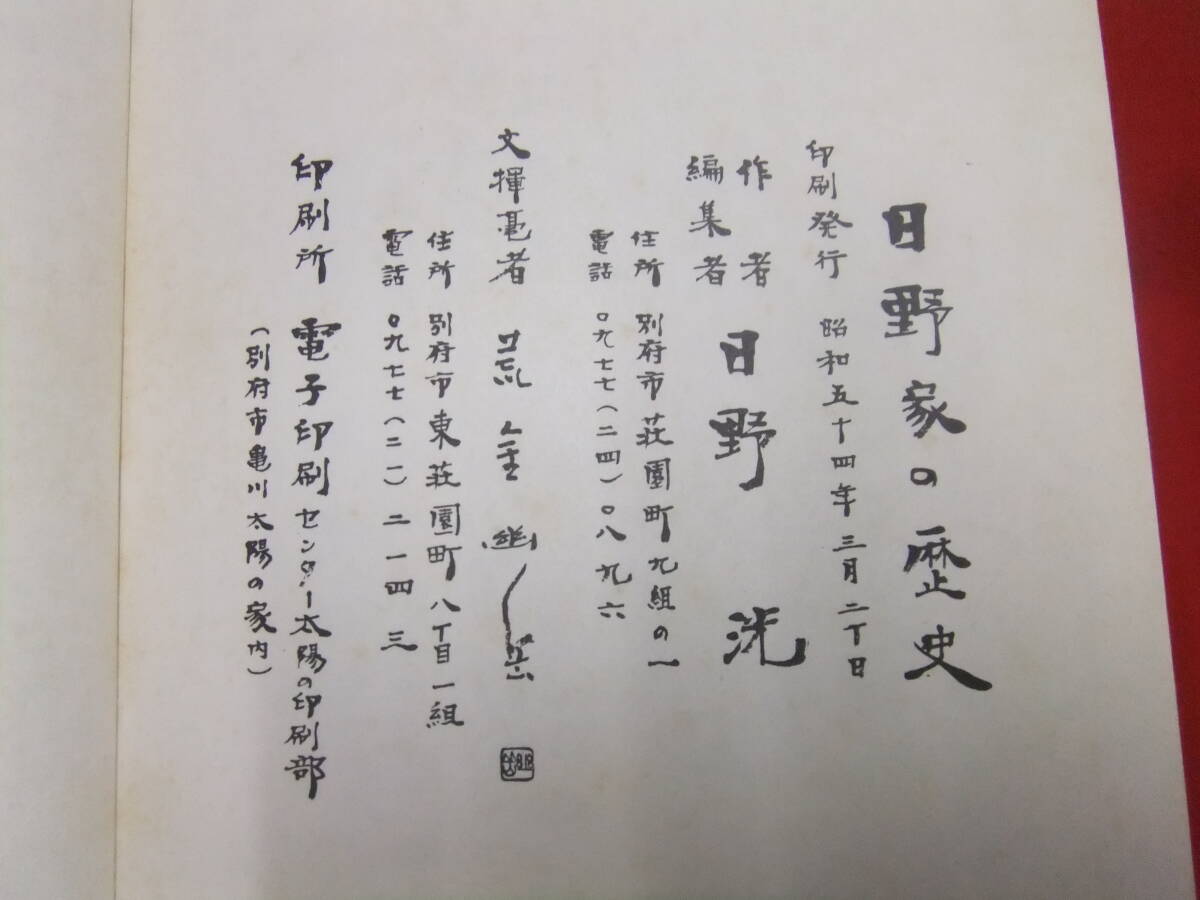 日野家の歴史
印刷発行 昭和五十四年三月二十日
作者
編集者 日野 洸
住所 別府市荘園町九組の一
電話 〇九七七(二四)〇八九六
文揮毫者 荒金
住所 別府市東荘園町八丁目一組
電話 〇九七七(二一)二一四三
印刷所 電子印刷センター太陽の印刷部
(別府市亀川太陽の家内)